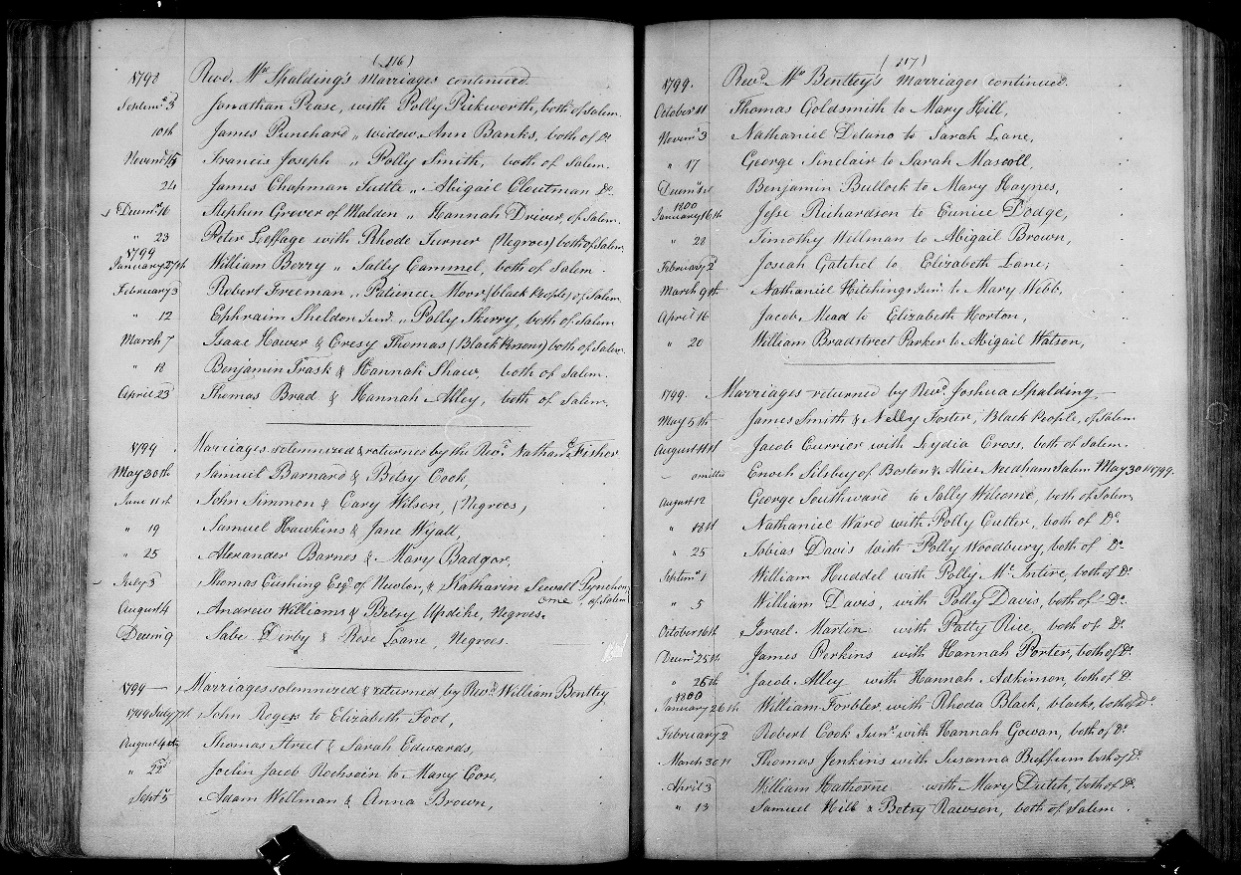 (116)
1798 Revd. Mr. Spalding's Marriages continued.
Septemr. 3 Jonathan Pease, with Polly Pickworth, both of Salem.
10th James Punchard „ widow Ann Banks, both of Do.
Novemr. 15 Francis Joseph „ Polly Smith, both of Salem.
24 James Chapman Tuttle „ Abigail Cloutman Do.
Decemr. 16 Stephen Grover of Malden „ Hannah Driver, of Salem.
„ 23 Peter Leffage with Rhode Turner (Negroes) both of Salem.
1799
January 27th William Berry „ Sally Cammel, both of Salem.
February 3 Robert Freeman „ Patience Moor (black People) of Salem.
„ 12 Ephraim Sheldon Junr. „ Polly Skerry, both of Salem
March 7 Isaac Hower & Cresy Thomas (Black Persons) both of Salem.
„ 18 Benjamin Trask & Hannah Shaw, both of Salem.
April 23 Thomas Brad & Hannah Alley, both of Salem.
1799 Marriages solemnized & returned by the Revd. Nathanl. Fisher
May 30th Samuel Barnard & Betsy Cook,
June 11th John Simmon & Cary Wilson, (Negroes,
„ 19 Samuel Hawkins & Jane Wyatt,
„ 25 Alexander Barnes & Mary Badger,
July 3 Thomas Cushing Esqr. of Newton, & Katharin Sewall Pynchon
one, of Salem
August 4 Andrew Williams & Betsy Updike, Negroes.
Decemr. 9 Sabe Dirby & Rose Lane, Negroes.
1799 — Marriages solemnized & returned by Revd. William Bentley
1799 July 7th John Rogers to Elizabeth Foot,
August 4th Thomas Street & Sarah Edwards,
„ 22d Joclin Jacob Rochsoin to Mary Cox,
Septr. 5 Adam Wellman & Anna Brown,
(117)
1799. Revd. Mr. Bentley's Marriages continued.
October 11 Thomas Goldsmith to Mary Hill,
Novemr. 3 Nathaniel Delano to Sarah Lane,
„ 17 George Sinclair to Sarah Mascoll,
Decemr. 1st Benjamin Bullock to Mary Haynes,
1800
January 16th Jesse Richardson to Eunice Dodge,
„ 28 Timothy Wellman to Abigail Brown,
February 2 Josiah Gatchel to Elizabeth Lane;
March 9th Nathaniel Hitchings Junr. to Mary Webb,
April 16 Jacob Mead to Elizabeth Horton,
„ 20 William Bradstreet Parker to Abigail Watson,
1799. Marriages returned by Revd. Joshua Spalding,
May 5th James Smith & Nelly Foster, Black People, of Salem
August 11st Jacob Currier with Lydia Cross, both of Salem.
— omitted Enoch Silsbey of Boston & Alice Needham Salem May 30th 1799.
August 12 George Southward to Sally Wilcome, both of Salem,
„ 18th Nathaniel Ward with Polly Cutler, both of Do.
„ 25 Tobias Davis with Polly Woodbury, both of Do.
Septemr. 1 William Huddel with Polly Mc.Intire, both of Do.
„ 5 William Davis, with Polly Davis, both of Do.
October 16th Israel Martin with Patty Rice, both of Do.
Decemr. 25th James Perkins with Hannah Porter, both of Do.
„ 26th Jacob Alley with Hannah Adkinson, both of Do.
1800
January 26th William Forbler, with Rhoda Black, blacks, both of Do.
February 2 Robert Cook Junr. with Hannah Gowan, both of Do.
March 30th Thomas Jenkins with Susanna Buffum both of Do.
April 3 William Hathorne with Mary Dutch, both of Do.
„ 13 Samuel Hill & Betsy Rawson, both of Salem.